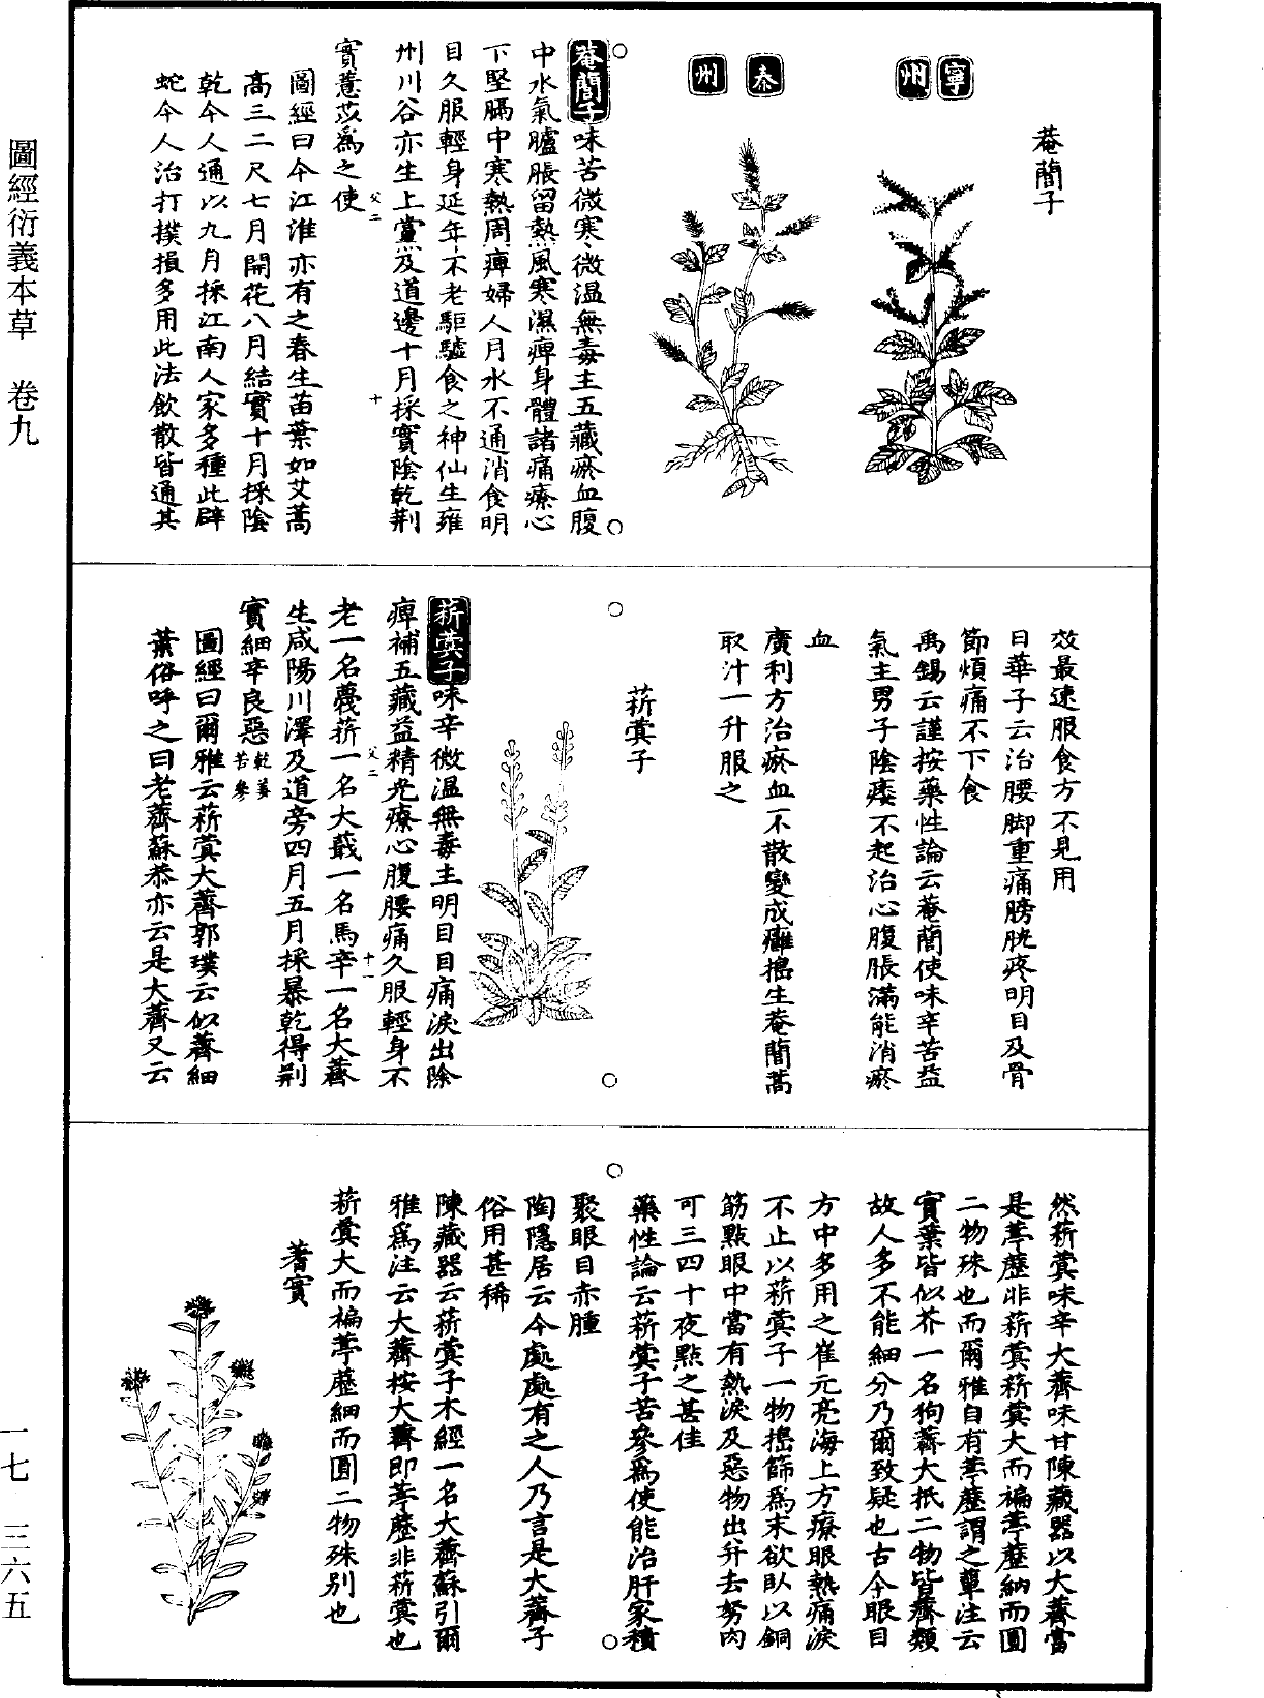 圖經衍義本草　卷九
一七　三六五
菴䕡子
寧州
秦州
菴䕡子味苦微寒微溫無毒主五藏瘀血腹
中水氣臚脹留熱風寒濕痺身體諸痛療心
下堅膈中寒熱周痺婦人月水不通消食明
目久服輕身延年不老駏驉食之神仙生雍
州川谷亦生上黨及道邊十月採實陰乾荆
實薏苡爲之使
父二
十
圖經曰今江淮亦有之春生苗葉如艾蒿
高三二尺七月開花八月結實十月採陰
乾今人通以九月採江南人家多種此辟
蛇今人治打撲損多用此法飲散皆通其
效最速服食方不見用
日華子云治腰脚重痛膀胱疼明目及骨
節煩痛不下食
禹錫云謹按藥性論云菴䕡使味辛苦益
氣主男子陰痿不起治心腹脹滿能消瘀
血
廣利方治瘀血不散變成癰擣生菴䕡蒿
取汁一升服之
菥蓂子
菥蓂子味辛微溫無毒主明目目痛淚出除
痺補五藏益精光療心腹腰痛久服輕身不
老一名蔑菥一名大蕺一名馬辛一名大薺
生咸陽川澤及道旁四月五月採暴乾得荆
實細辛良惡乾薑苦參
父二
十一
圖經曰爾雅云菥蓂大薺郭璞云似薺細
葉俗呼之曰老薺蘇恭亦云是大薺又云
然菥蓂味辛大薺味甘陳藏器以大薺當
是葶藶非菥蓂菥蓂大而褊葶藶納而圓
二物殊也而爾雅自有葶藶謂之蕇注云
實葉皆似芥一名狗薺大抵二物皆薺類
故人多不能細分乃爾致疑也古今眼目
方中多用之崔元亮海上方療眼熱痛淚
不止以菥蓂子一物擣篩爲末欲卧以銅
筋點眼中當有熱淚及惡物出幷去努肉
可三四十夜點之甚佳
藥性論云菥蓂子苦參爲使能治肝家積
聚眼目赤腫
陶隱居云今處處有之人乃言是大薺子
俗用甚稀
陳藏器云菥蓂子木經一名大薺蘇引爾
雅爲注云大薺桉大薺即葶藶非菥蓂也
菥蓂大而褊葶藶細而圓二物殊別也
蓍實